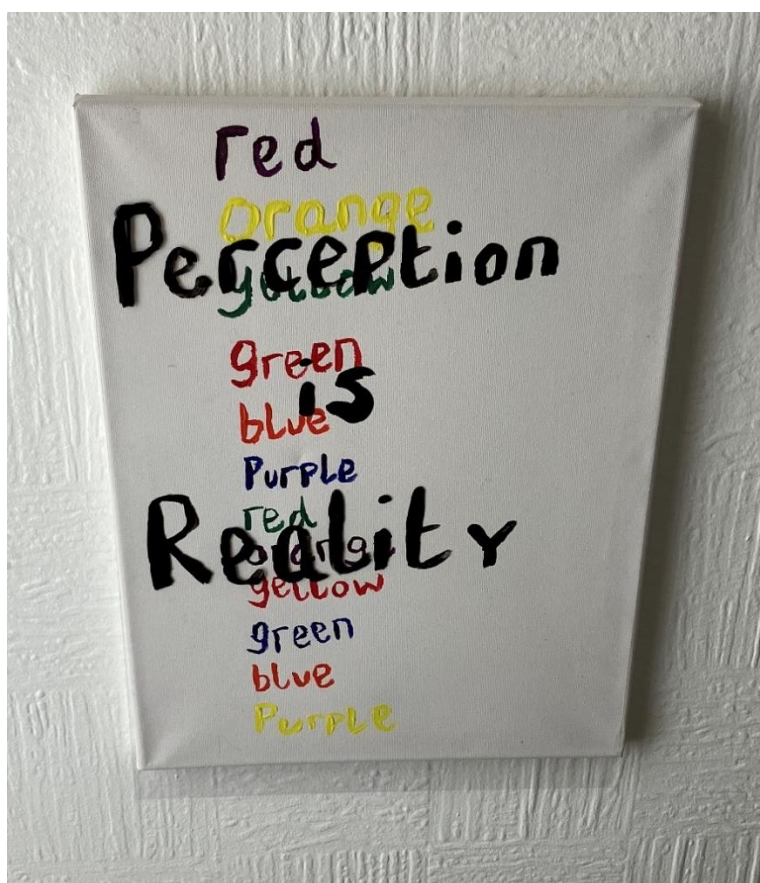 red
orange
Perception
yellow
green
is
blue
Purple
red
Reality
orange
yellow
green
blue
Purple